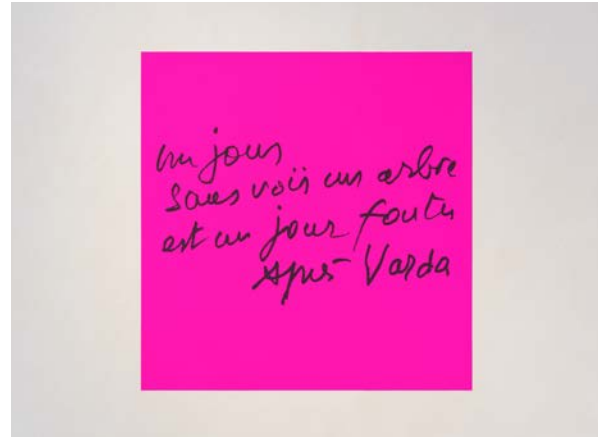 un jour
sans voir un arbre
est un jour foutu
Agnès Varda